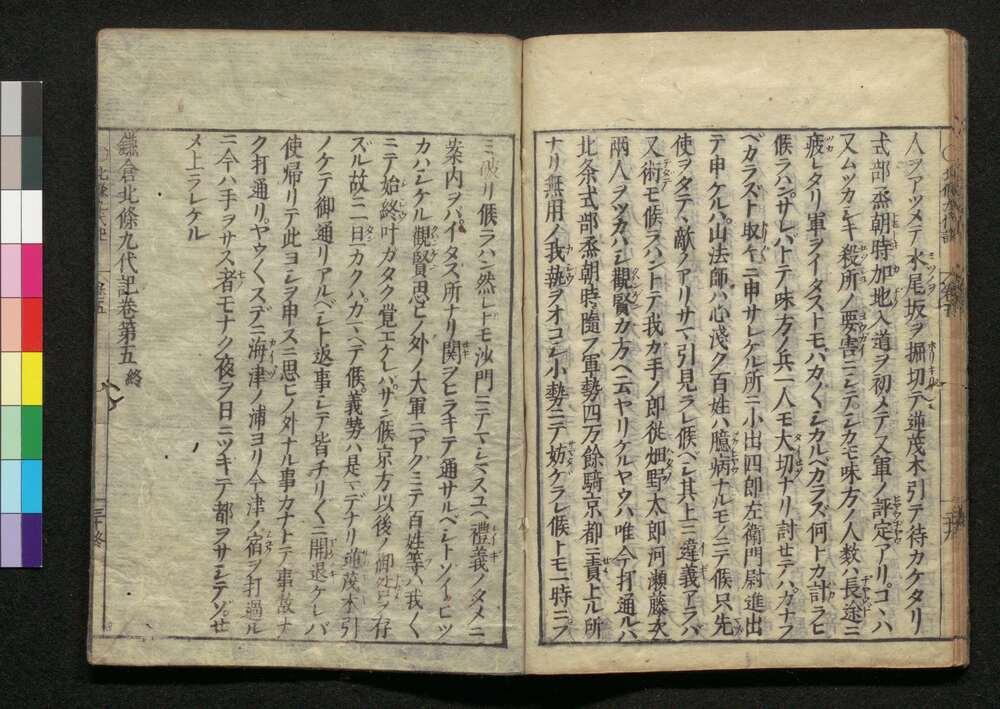 人ヲアツメテ水尾坂ヲ掘切テ逆茂木引テ待カケタリ
式部丞朝時加地入道ヲ初メテ又軍ノ評定アリコヽハ
又ムツカシキ殺所ノ要害ニシテシカモ味方ノ人数ハ長途ニ
疲レタリ軍ヲイタストモハカ〳〵シカルベカラズ何トカ計ラヒ
候ランサレハトテ味方ノ兵一人モ大切ナリ討セテハカナフ
ベカラズト取〳〵ニ申サレケル所ニ小出四郎左衛門尉進出
テ申ケルハ山法師ハ心浅ク百姓ハ臆病ナルモノニテ候只先
使ヲタテヽ敵ノアリサマヽ引見ラレ候ヘシ其上ニ違義アラバ
又術モ候ラハントテ我カ手ノ郎従畑野太郎河瀬藤次
両人ヲツカハシ觀賢カ方ヘ云ヤリケルヤウハ唯今打通ルハ
北条式部丞朝時ニ隨フ軍勢四万餘騎京都ニ責上ル所
ナリ無用ノ我執ヲオコシ小勢ニテ妨ケラレ候トモ一時ニフ
ミ破リ候ラハン然レトモ沙門ニテマシマスユヘ禮義ノタメニ
案内ヲバイタス所ナリ関ヲヒラキテ通サルベシトソイヒツ
カハシケル觀賢思ヒノ外ノ大軍ニアクミテ百姓等ハ我〳〵
ニテ始終叶カタク覚エケレハサン候京方以後ノ御処ヲ存
ズル故ニ一旦カクハカマヘテ候義勢ハ是マデナリ逆茂木引
ノケテ御通リアルベシト返事シテ皆チリ〳〵ニ開退ケレバ
使帰リテ此ヨシヲ申スニ思ヒノ外ナル事カナトテ事故ナ
ク打通リヤウ〳〵スデニ海津ノ浦ヨリ今津ノ宿ヲ打過ル
ニ今ハ手ヲサス者モナク夜ヲ日ニツキテ都ヲサシテソせ
メ上ラレケル
鎌倉北條九代記巻第五終